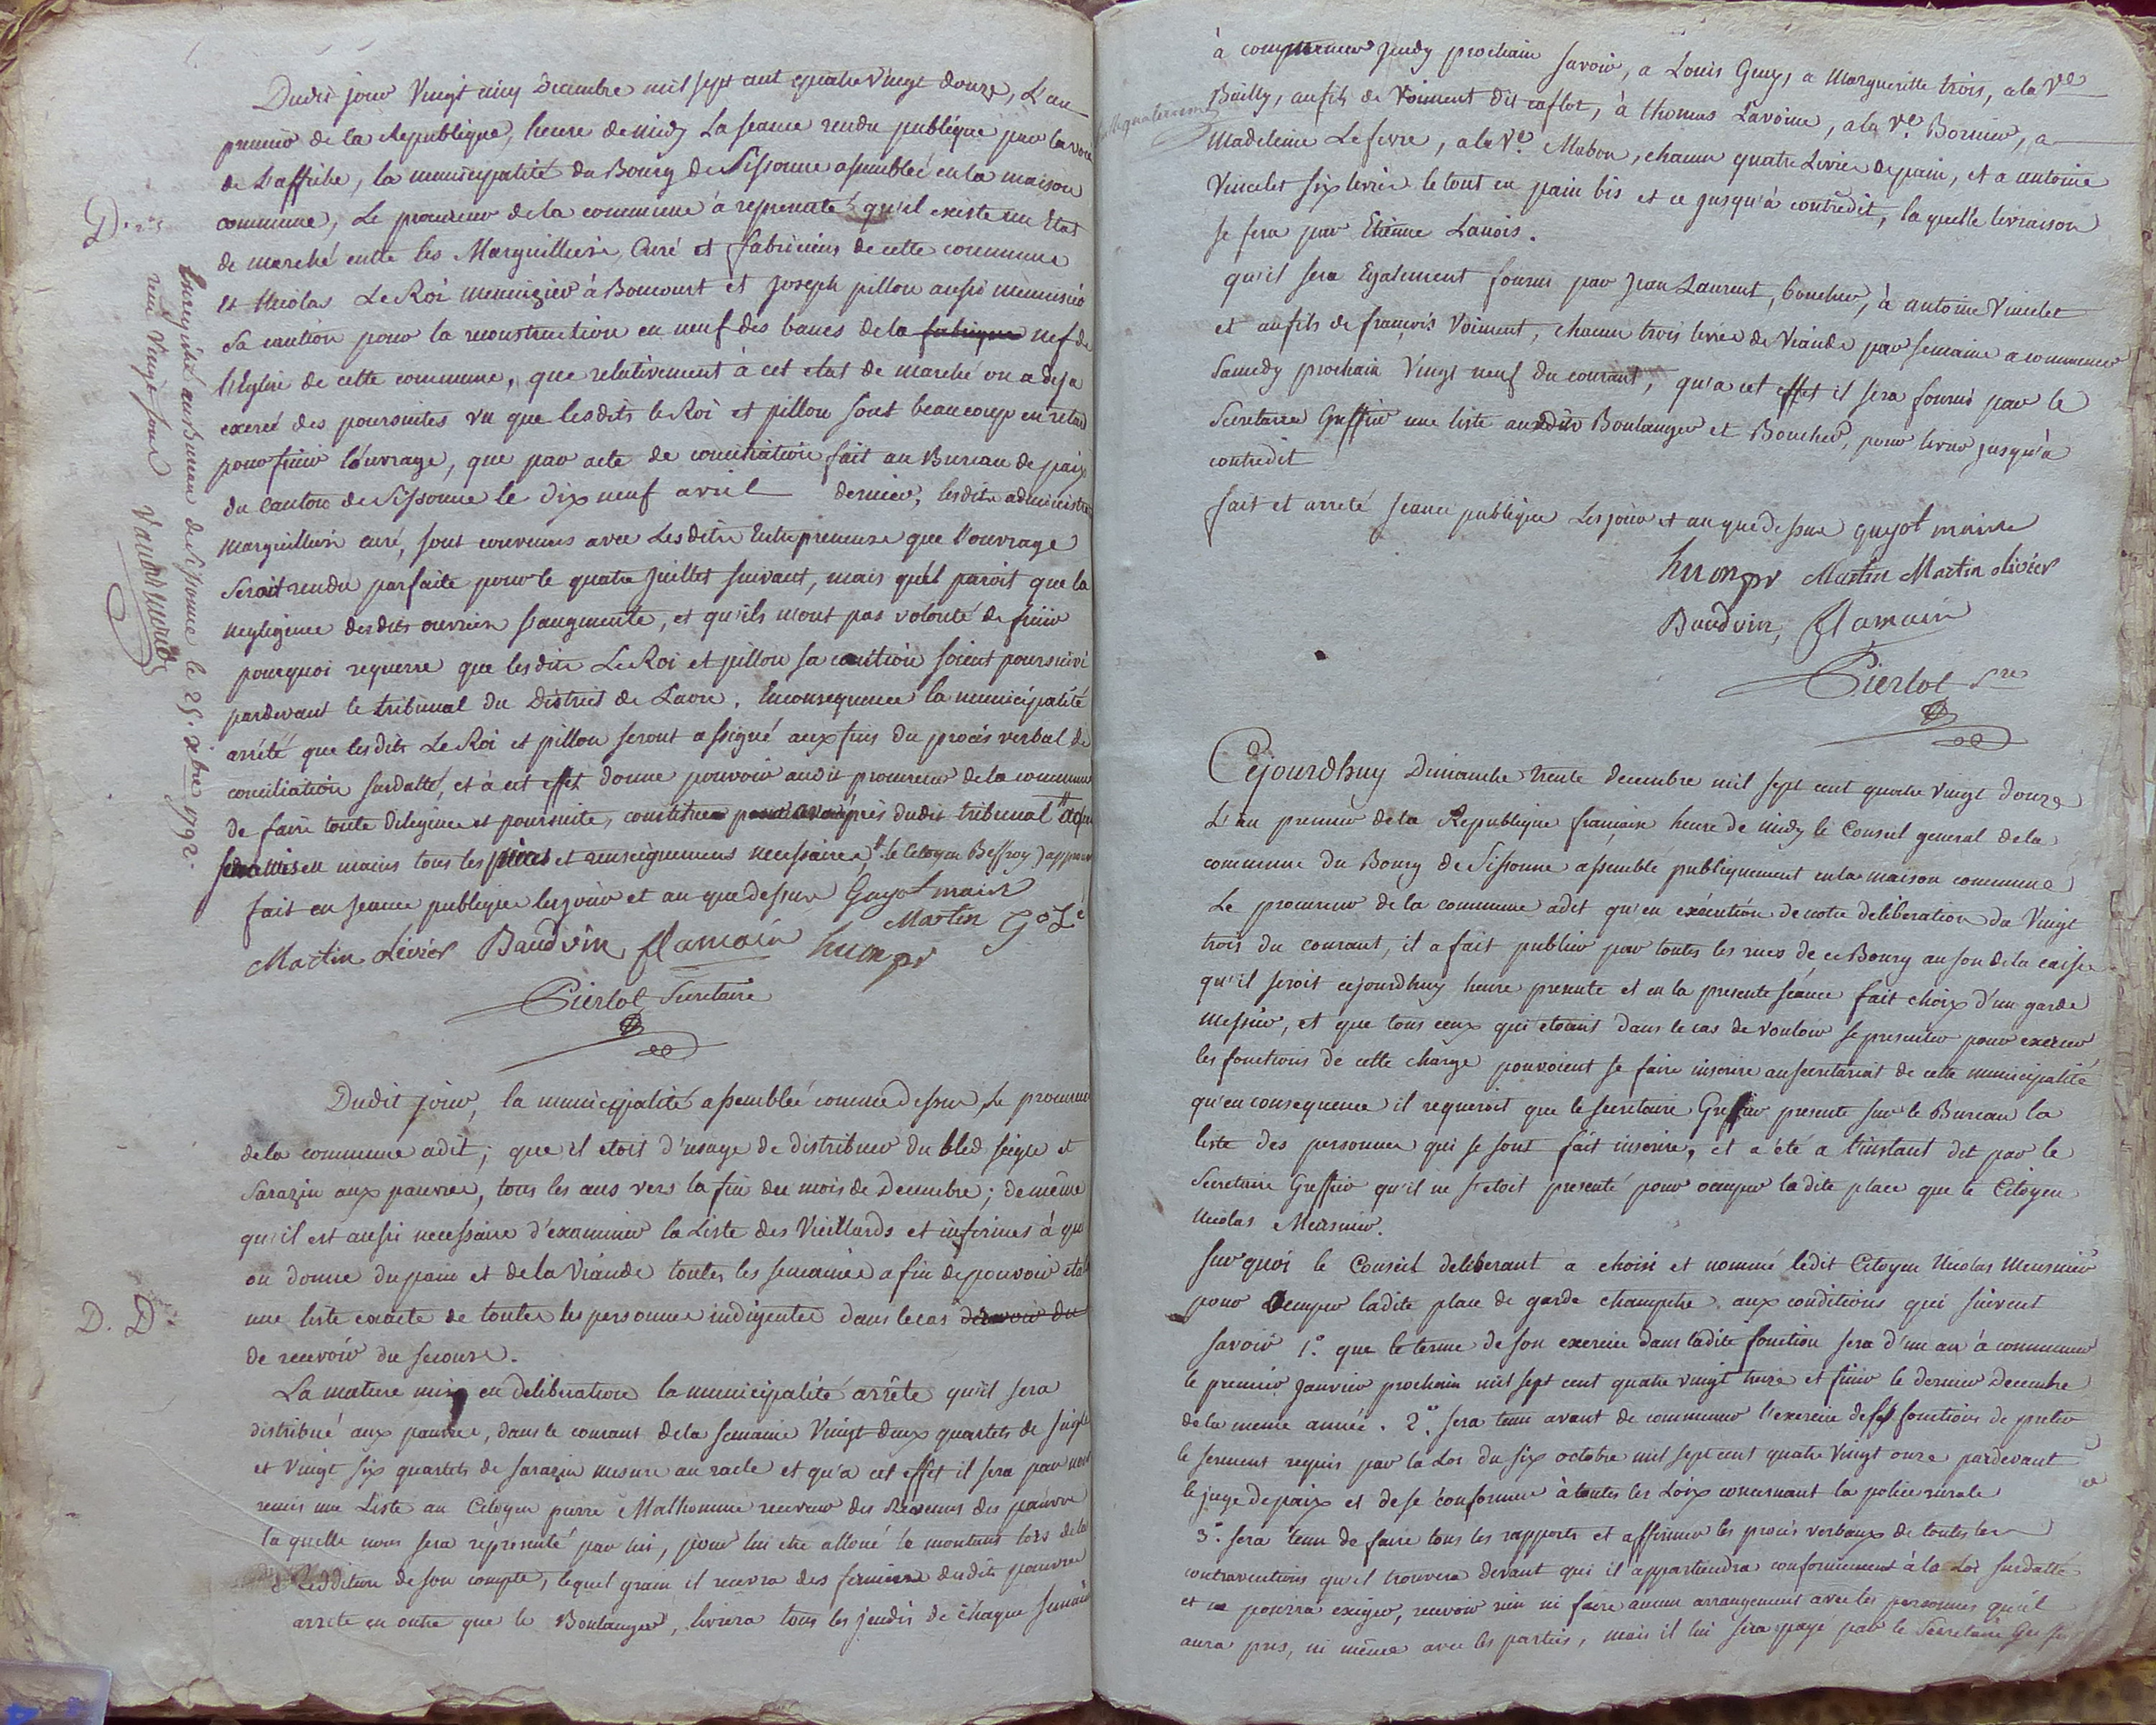 Dudit jour Vingt cinq Decembre mil sept cent quatre Vingt douze, L'an
premier de la Republique, heure de midy La seance rendu publique par la voie
de L'affiche, la municipalité du Bourg de Sissonne assemblée en la maison
commune, Le procureur de la commune à representé qu'il existe un Etat
de marché entre les Marguilliers, Curé et fabriciens de cette commune
et Nicolas Le Roi Menuizier à Boncourt et Joseph pillon aussi menuisier
Sa caution pour la reconstruction en neuf des bancs de la fabrique nef de
l'Eglise de cette commune, que relativement à cet etat de marché on a deja
exercé des poursuites vu que lesdits le Roi et pillon sont beaucoup en retard
pour finir l'ouvrage, que par acte de conciliation fait au Bureau de paix
du Canton de Sissonne le dix neuf avril dernier, lesdits administrateurs
Marguilliers curé, sont convenus avec Lesdits Entrepreneurs que l'ouvrage
Serait rendu parfaite pour le quatre Juillet suivant, mais qu'il paroit que la
negligence desdits ouvriers s'augmente, et qu'ils n'ont pas volonté de finir
pourquoi requerre que lesdits Le Roi et pillon sa caution soient poursuivi
pardevant le tribunal du District de Laon. En consequence la municipalité
arrêté que lesdits Le Roi et pillon seront assigné aux fins du procès verbal de
conciliation susdatté, et à cet effet donne pouvoir audit procureur de la commune
de faire toute diligence et poursuite, constituer pour avoué près dudit tribunal
sera mis en mains tous les pièces et renseignemens necessaires, le Citoyen Beffroy) approuvé
fait en seance publique les jour et an que dessus Guyot maire
Martin G o L é
Martin olivier Baudvin flamain
Pierlot Secretaire
D.
Enregistré au Bureau de Sissonne le 25. Xbre 1792.
reçu Vingt sous
Dudit jour, la municipalité assemblée comme dessus, Le procureur
de la commune a dit; que il etoit d'usage de distribuer du bled seigle et
Sarazin aux pauvres, tous les ans vers la fin du mois de Decembre; de même
qu'il est aussi necessaire d'examiner la Liste des Vieillards et infirmes à qui
on donne du pain et de la Viande toutes les semaines afin de pouvoir etablir
une liste exacte de toutes les personnes indigentes dans le cas
de recevoir du secours.
D. D.
La matiere mise en deliberation la municipalité arrête qu'il sera
distribué aux pauvres, dans le courant de la semaine Vingt deux quartets de seigle
et Vingt six quartets de sarazin mesure au racle et qu'a cet effet il sera par nous
remis une Liste au Citoyen pierre Malhomme receveur des Revenus des pauvres
la quelle nous sera représenté par lui, pour lui etre alloué le montant lors de la
Reddition de son compte, lequel grain il recevra des fermiers desdits pauvres
arrete en outre que le Boulanger, livrera tous les jeudis de chaque semaine
à commencer Jeudy prochain savoir, a Louis Guy, a Margueritte trois, a la Ve
Bailly, au fils de Voiment dit caflot, à thomas Lavoine, a la Ve Bornier, a
Madeleine Lefevre, a la Ve Mabon, chacun quatre Livres de pain, et a antoine
Vincelet six livres le tout en pain bis et ce jusqu'à contredit, la quelle livraison
se fera par Etienne Lanois.
qu'il sera Egalement fourni par Jean Laurent, boucher, à antoine Vincelet
et au fils de françois Voiment, chacun trois livres de Viande par semaine a commencer
Samedy prochain Vingt neuf du courant, qu'a cet effet il sera fournis par le
Secretaire Greffier une liste auxdits Boulanger et Boucher, pour livrer jusqu'à
contredit
fait et arreté seance publique Les jour et an que dessus guyot maire
Martin Martin olivier
Baudvin, flamain
Pierlot Sre
Cejourdhuy Dimanche trente decembre mil sept cent quatre vingt douze
L'an premier de la Republique françaisse heure de midy le Conseil general de la
commune du Bourg de Sissonne assemble publiquement en la maison commune
Le procureur de la commune a dit qu'en exécution de notre deliberation du Vingt
trois du courant, il a fait publier par toutes les rues de ce Bourg au son de la caisse
qu'il seroit cejourdhuy heure presente et en la presente séance fait choix d'un garde
Messier, et que tous ceux qui etoient dans le cas de vouloir se presenter pour exercer
les fonctions de cette charge pouvoient se faire inscrire au secretariat de cette municipalité
qu'en consequence il requeroit que le secretaire Greffier presente sur le Bureau la
liste des personnes qui se sont fait inscrire, et a été a l'instant dit par le
Secretaire Greffier qu'il ne s'etoit presenté pour occuper ladite place que le Citoyen
Nicolas Meusnier.
Sur quoi le Conseil deliberant a choisi et nommé ledit Citoyen Nicolas Meusnier
pour Occuper ladite place de garde champetre aux conditions qui suivent
Savoir 1.° que le terme de son exercice dans ladite fonction sera d'un an à commencer
le premier Janvier prochain mil sept cent quatre vingt treize et finir le dernier Decembre
de la meme année. 2.° sera tenu avant de commencer l'exercice de ses fonctions de preter
le serment requis par la Loi du six octobre mil sept cent quatre Vingt onze pardevant
le juge de paix et de se conformer à toutes les Loix concernant la police rurale
3.° sera tenu de faire tous les rapports et affirmer les procès verbaux de toutes les
contraventions qu'il trouvera devant qui il appartiendra conformement à la Loi susdatté
et ne pourra exiger, recevoir rien ni faire aucun arrangement avec les personnes qu'il
aura pris, ni même avec les parties, mais il lui sera payé par le Secretaire Greffier